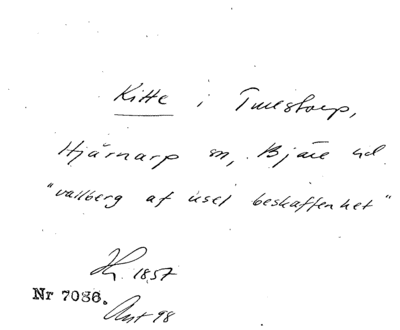 Kitte i Tullstorp,
Hjärnarp sn, Bjäre hd.
"vallberg af usel beskaffenhet"
1857
Nr 7036.
Ant 98